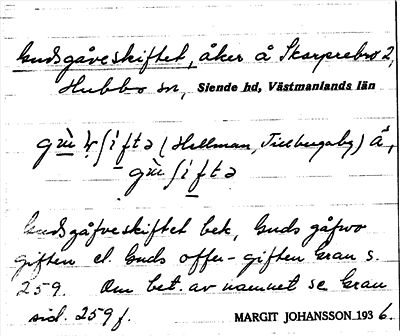 Gudsgåveskiftet, åker å Skarprebro 2,
Hubbo sn, Siende hd, Västmanlands län
(Hellman, Tillbergaby) Å,
Gudsgåfveskiftet bek, Guds gåfvo
giften el. Guds offer-giften Gran s.
259. Om bet. av namnet se Gran
sid. 259 f. MARGIT JOHANSSON. 193 6.